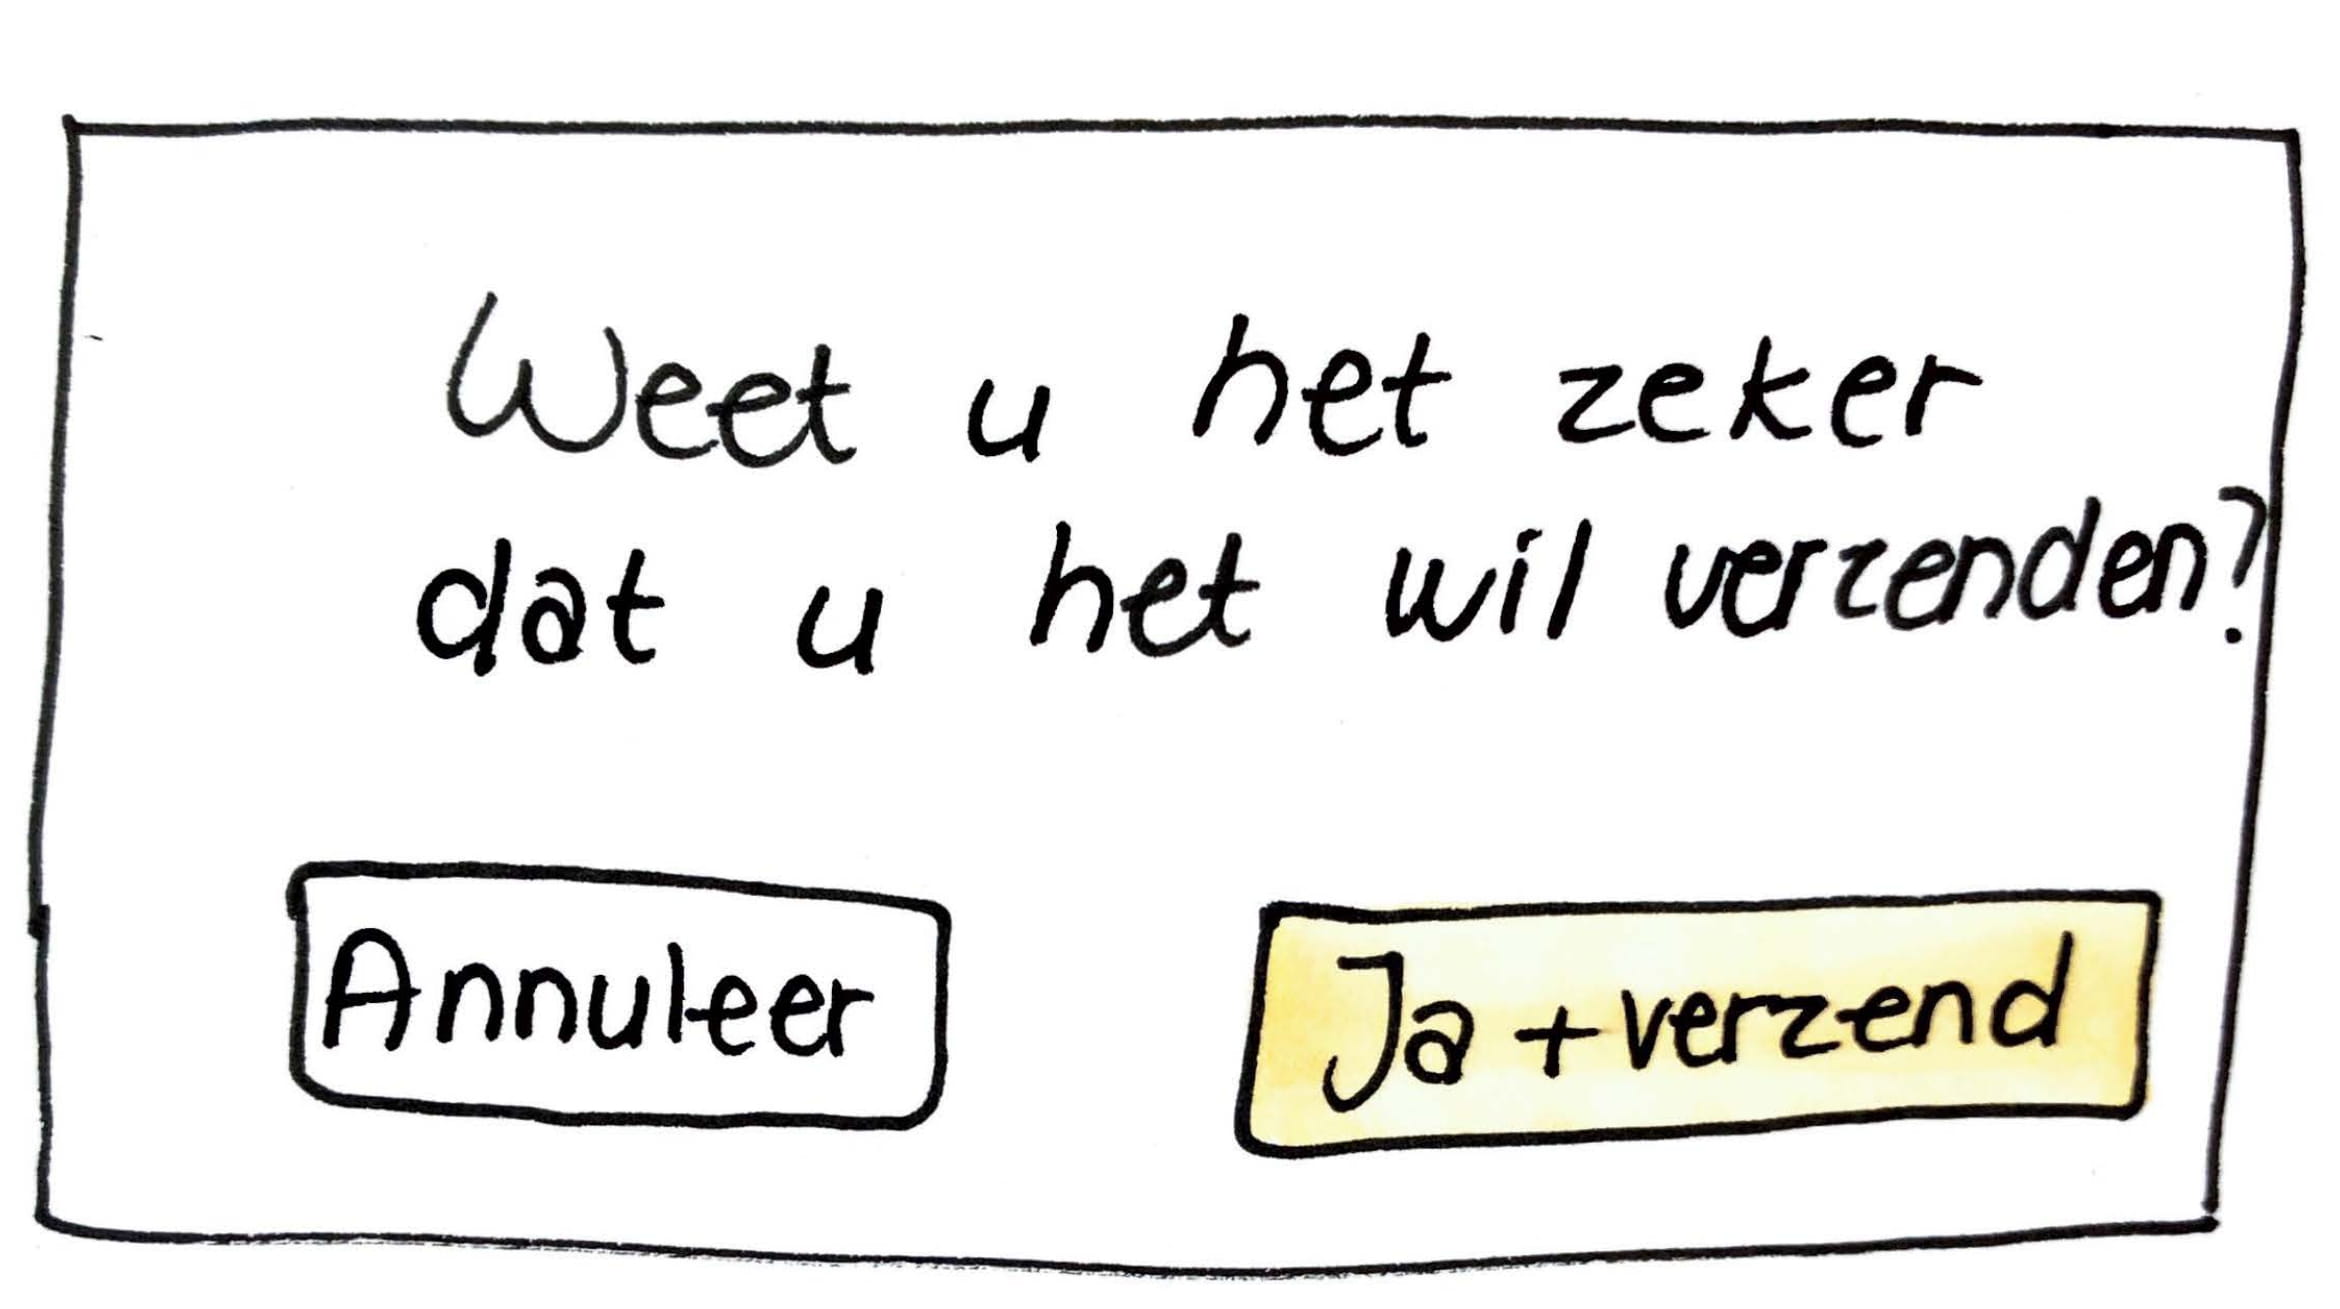 Weet u het zeker
dat u het wil verzenden?
Annuleer
Ja + verzend